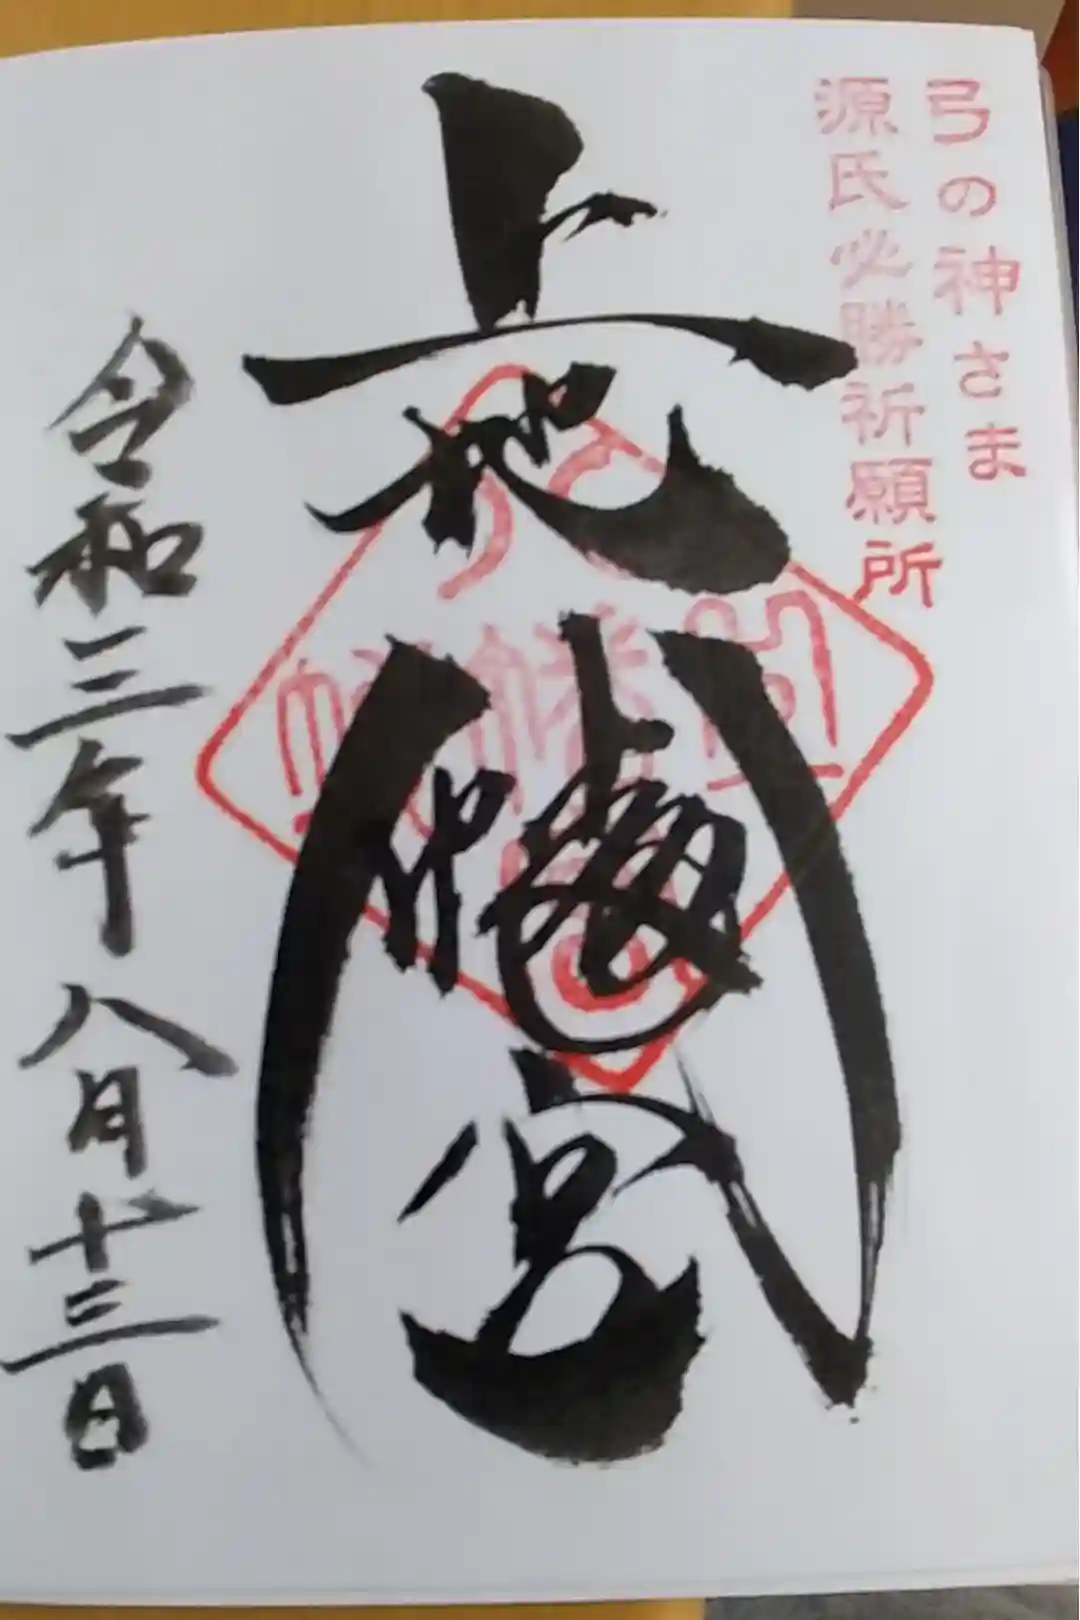 弓の神さま
源氏必勝祈願所
上地八幡宮
令和三年八月十三日